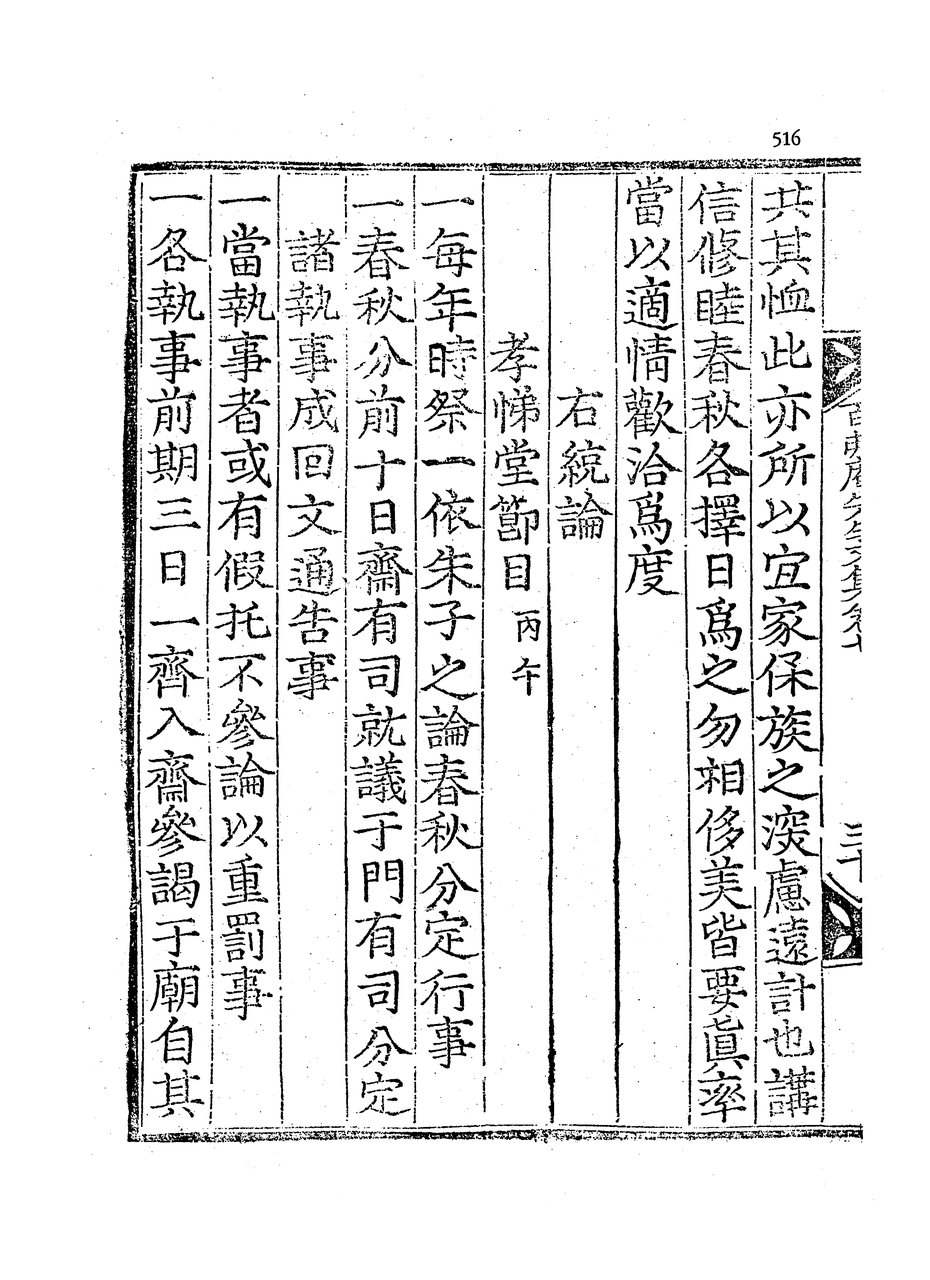 516
共其恤此亦所以宜家保族之深慮遠計也講
信修睦春秋各擇日爲之勿相侈美皆要眞率
當以適情歡洽爲度
右統論
孝悌堂節目丙午
一每年時祭一依朱子之論春秋分定行事
一春秋分前十日齋有司就議于門有司分定
諸執事成回文通告事
一當執事者或有假托不參論以重罰事
一各執事前期三日一齊入齋參謁于廟自其